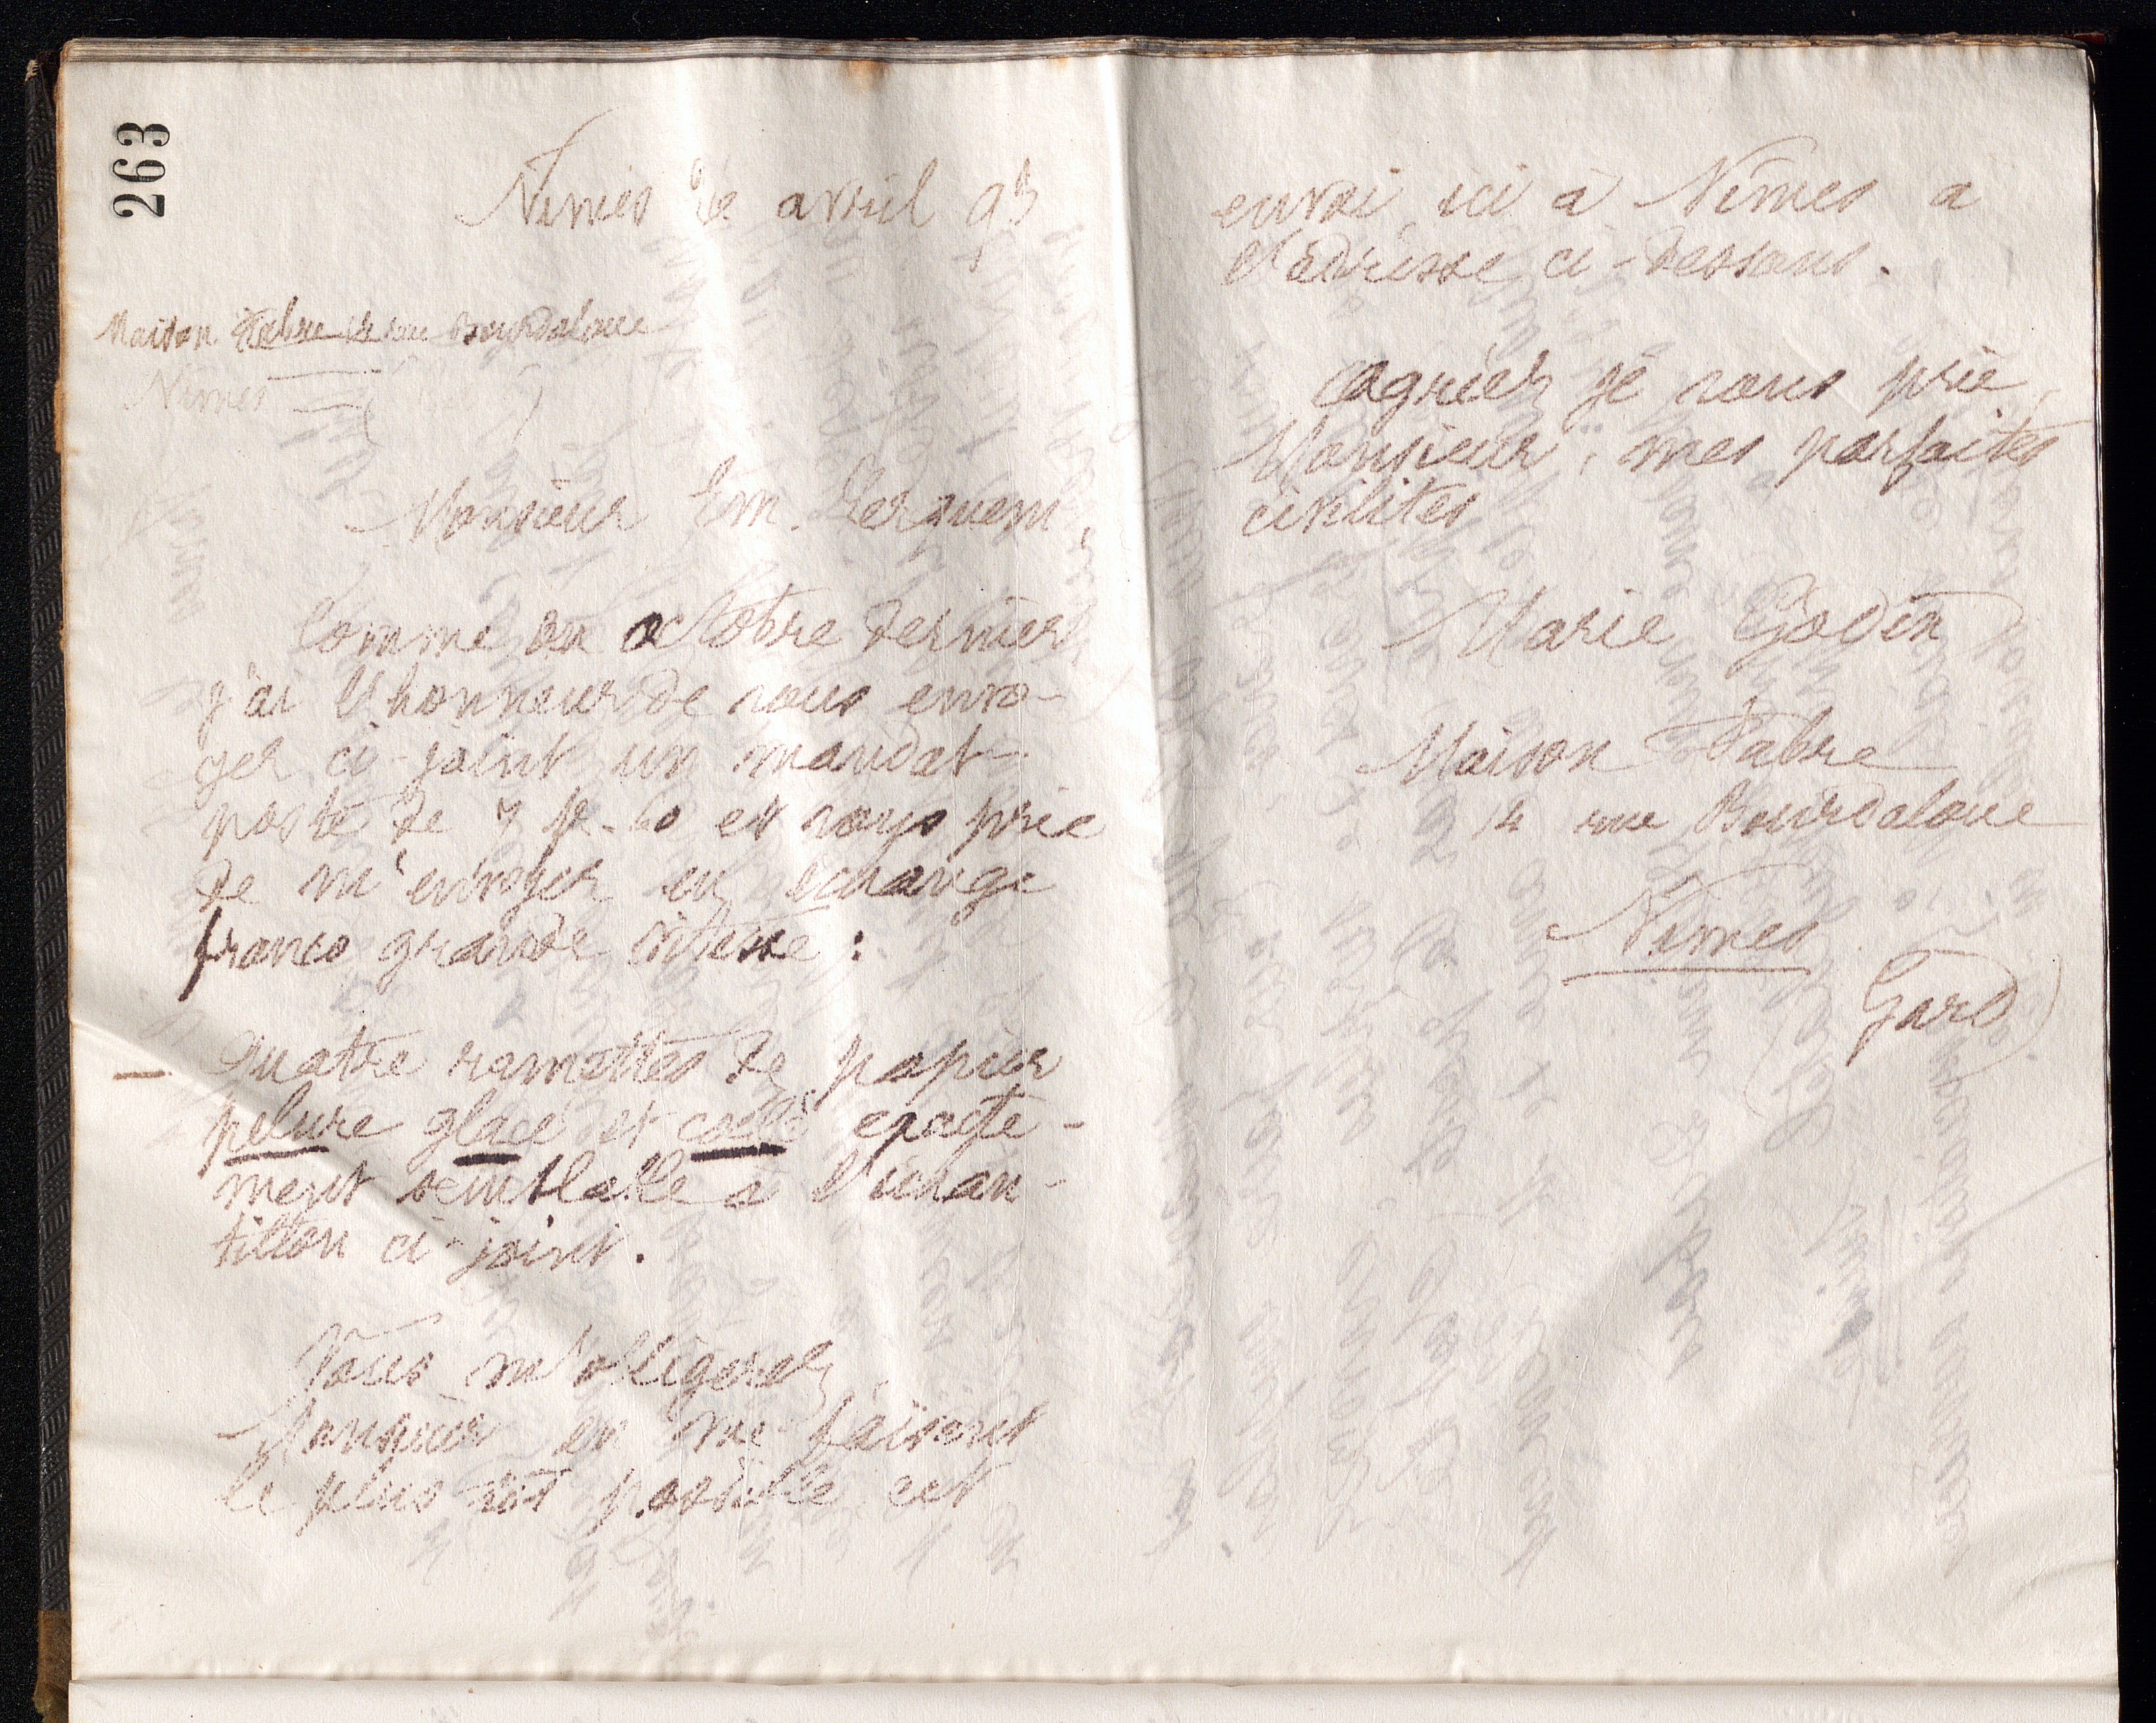 263
Nîmes avril 95
Maison Fabre rue Bourdaloue
Nîmes
Monsieur Em. Terquem,
Comme en octobre dernier
j'ai l'honneur de vous envo-
yer ci-joint un mandat-
poste de 7 fr. 60 et vous prie
de m'envoyer en échange
franco grande vitesse :
- Quatre ramettes de papier
pelure glacé et collé exacte-
ment semblable à l'échan-
tillon ci-joint.
Vous m'obligerez,
Monsieur en me faisant
le plus tôt possible cet
envoi, ici à Nîmes à
l'adresse ci-dessous.
Agréez je vous prie,
Monsieur, mes parfaites
civilités
Marie Godin
Maison Fabre
14 rue Bourdaloue
Nîmes
(Gard)